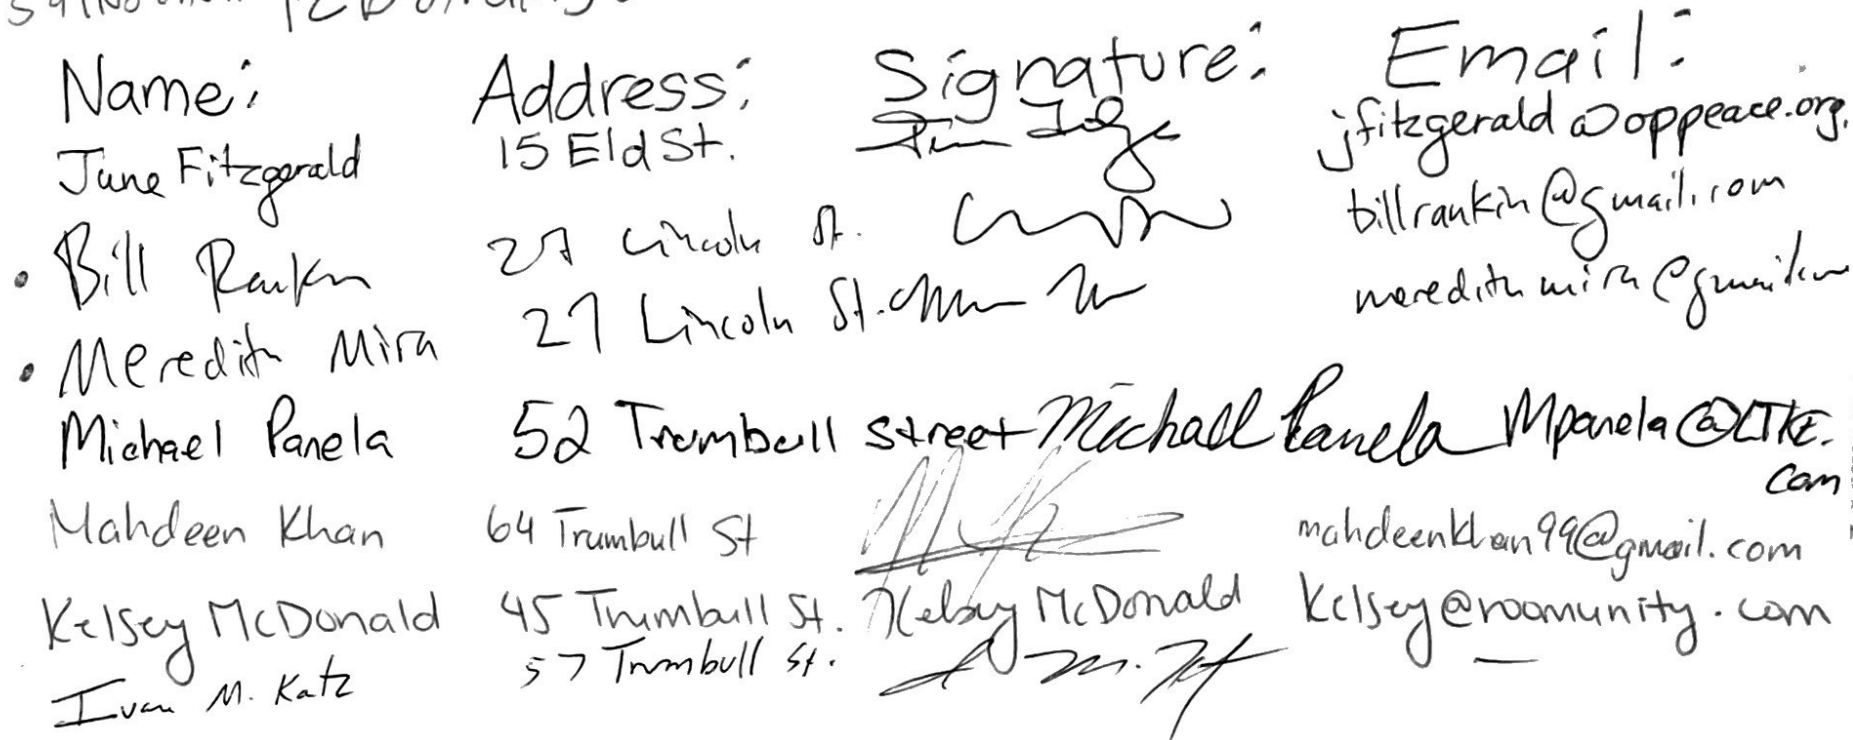 Name: Address: Signature: Email:
June Fitzgerald 15 Eld St. jfitzgerald@oppeace.org.
Bill Rankin 27 Lincoln St. billrankin@gmail.com
Meredith Mira 27 Lincoln St. meredithmira@gmail.com
Michael Panela 52 Trumbull street Michael Panela Mpanela@LTKE.
com
Mahdeen Khan 64 Trumbull St mahdeenkhan99@gmail.com
Kelsey McDonald 45 Trumbull St. Kelsey McDonald Kelsey@roomunity.com
Ivan M. Katz 57 Trumbull St. —